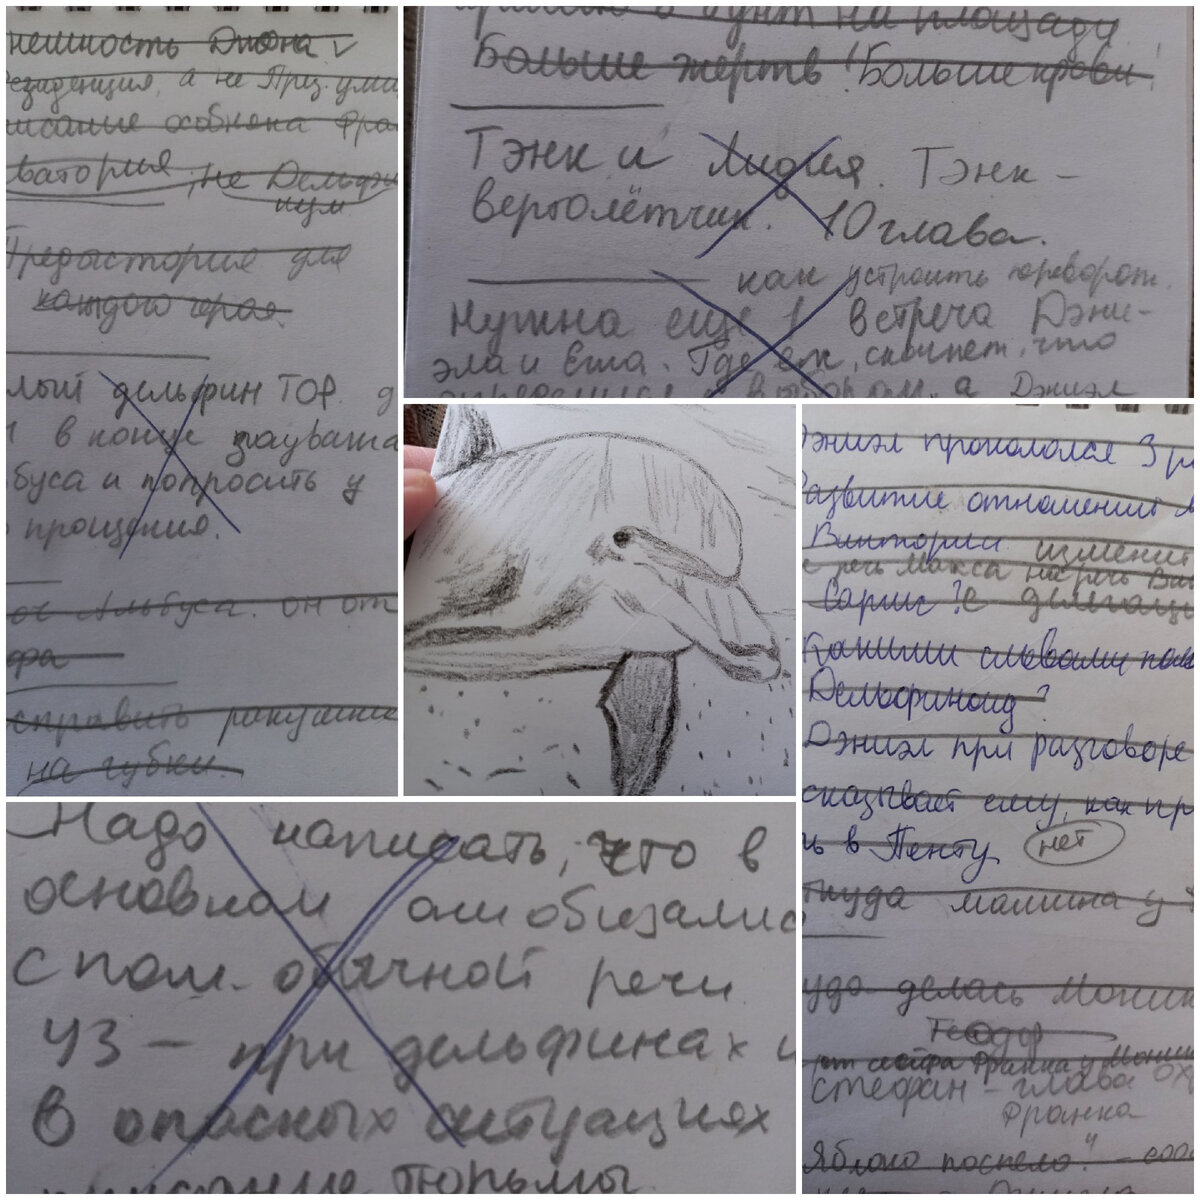 нешность Джона
Резиденция, а не През. ум
писание особняка Фра
ватория, не Дельфи
нум
Предыстория для
каждого героя.
лый дельфин ТОР. д
в конце
буса и попросить у
прощения.
Альбуса. он от
фа
справить ракушки
на губки.
бунт на площади
Больше жертв! Больше крови!
Тэнк и Лидия. Тэнк -
вертолётчик. 10 глава.
как устроить переворот.
Нужна еще 1 встреча Дэни-
эла и Ела. Где ел, скажет, что
а Дэниэл
Дэниэл прокололся 3 р
Развитие отношений М
Виктории. изменит
речь Макса на речь Ва
Сариис? с делегаци
Какими словами
Дельфиноид?
Дэниэл при разговоре
сказывает ему, как пр
ь в Пенту нет
ткуда машина у
уда делась Моник
Теодор
сестра Франка у Моник
Стефан - глава ох
Франка
Яблоко поспело." -
Надо написать, что в
основном они обизалис
с пом. обычной речи
УЗ - при дельфинах и
в опасных ситуациях
писание тюрьмы